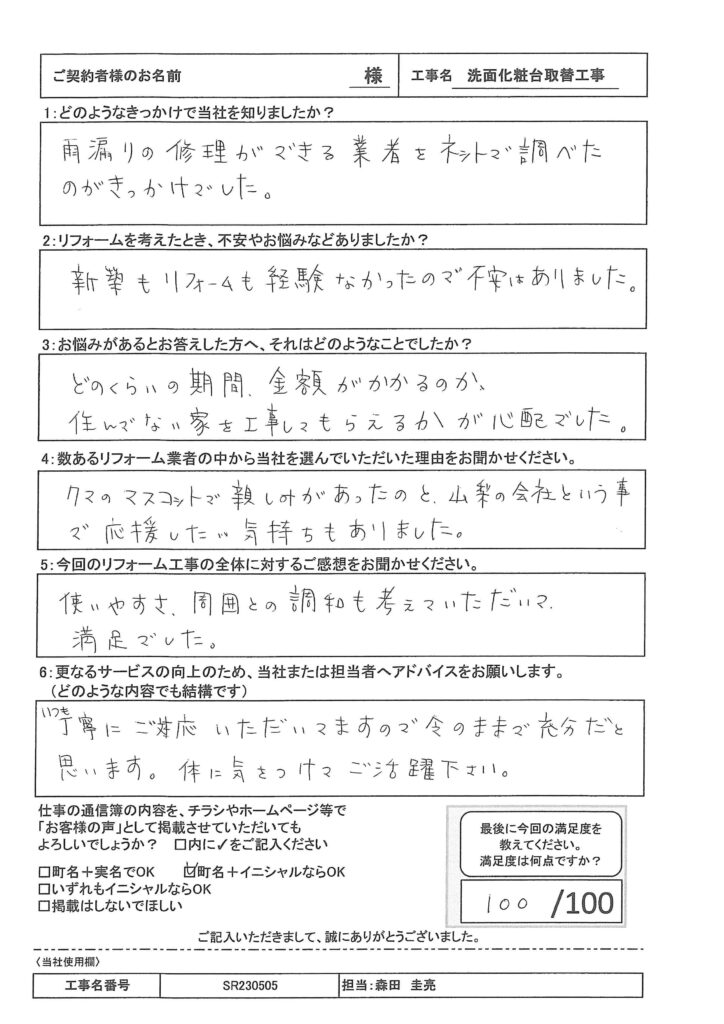 ご契約者様のお名前 様 工事名 洗面化粧台取替工事
1:どのようなきっかけで当社を知りましたか？
雨漏りの修理ができる業者をネットで調べた
のがきっかけでした。
2:リフォームを考えたとき、不安やお悩みなどありましたか？
新築もリフォームも経験なかったので不安はありました。
3:お悩みがあるとお答えした方へ、それはどのようなことでしたか？
どのくらいの期間、金額がかかるのか、
住んでない家を工事してもらえるかが心配でした。
4:数あるリフォーム業者の中から当社を選んでいただいた理由をお聞かせください。
クマのマスコットで親しみがあったのと、山梨の会社という事
で応援したい気持ちもありました。
5:今回のリフォーム工事の全体に対するご感想をお聞かせください。
使いやすさ、周囲との調和も考えていただいて、
満足でした。
6:更なるサービスの向上のため、当社または担当者へアドバイスをお願いします。
（どのような内容でも結構です）
いつも
丁寧にご対応いただいてますので今のままで充分だと
思います。体に気をつけてご活躍下さい。
仕事の通信簿の内容を、チラシやホームページ等で
「お客様の声」として掲載させていただいても
よろしいでしょうか？ □内に✓をご記入ください
□町名＋実名でOK ☑町名＋イニシャルならOK
□いずれもイニシャルならOK
□掲載はしないでほしい
最後に今回の満足度を
教えてください。
満足度は何点ですか？
100 /100
ご記入いただきまして、誠にありがとうございました。
〈当社使用欄〉
工事名番号 SR230505 担当:森田 圭亮